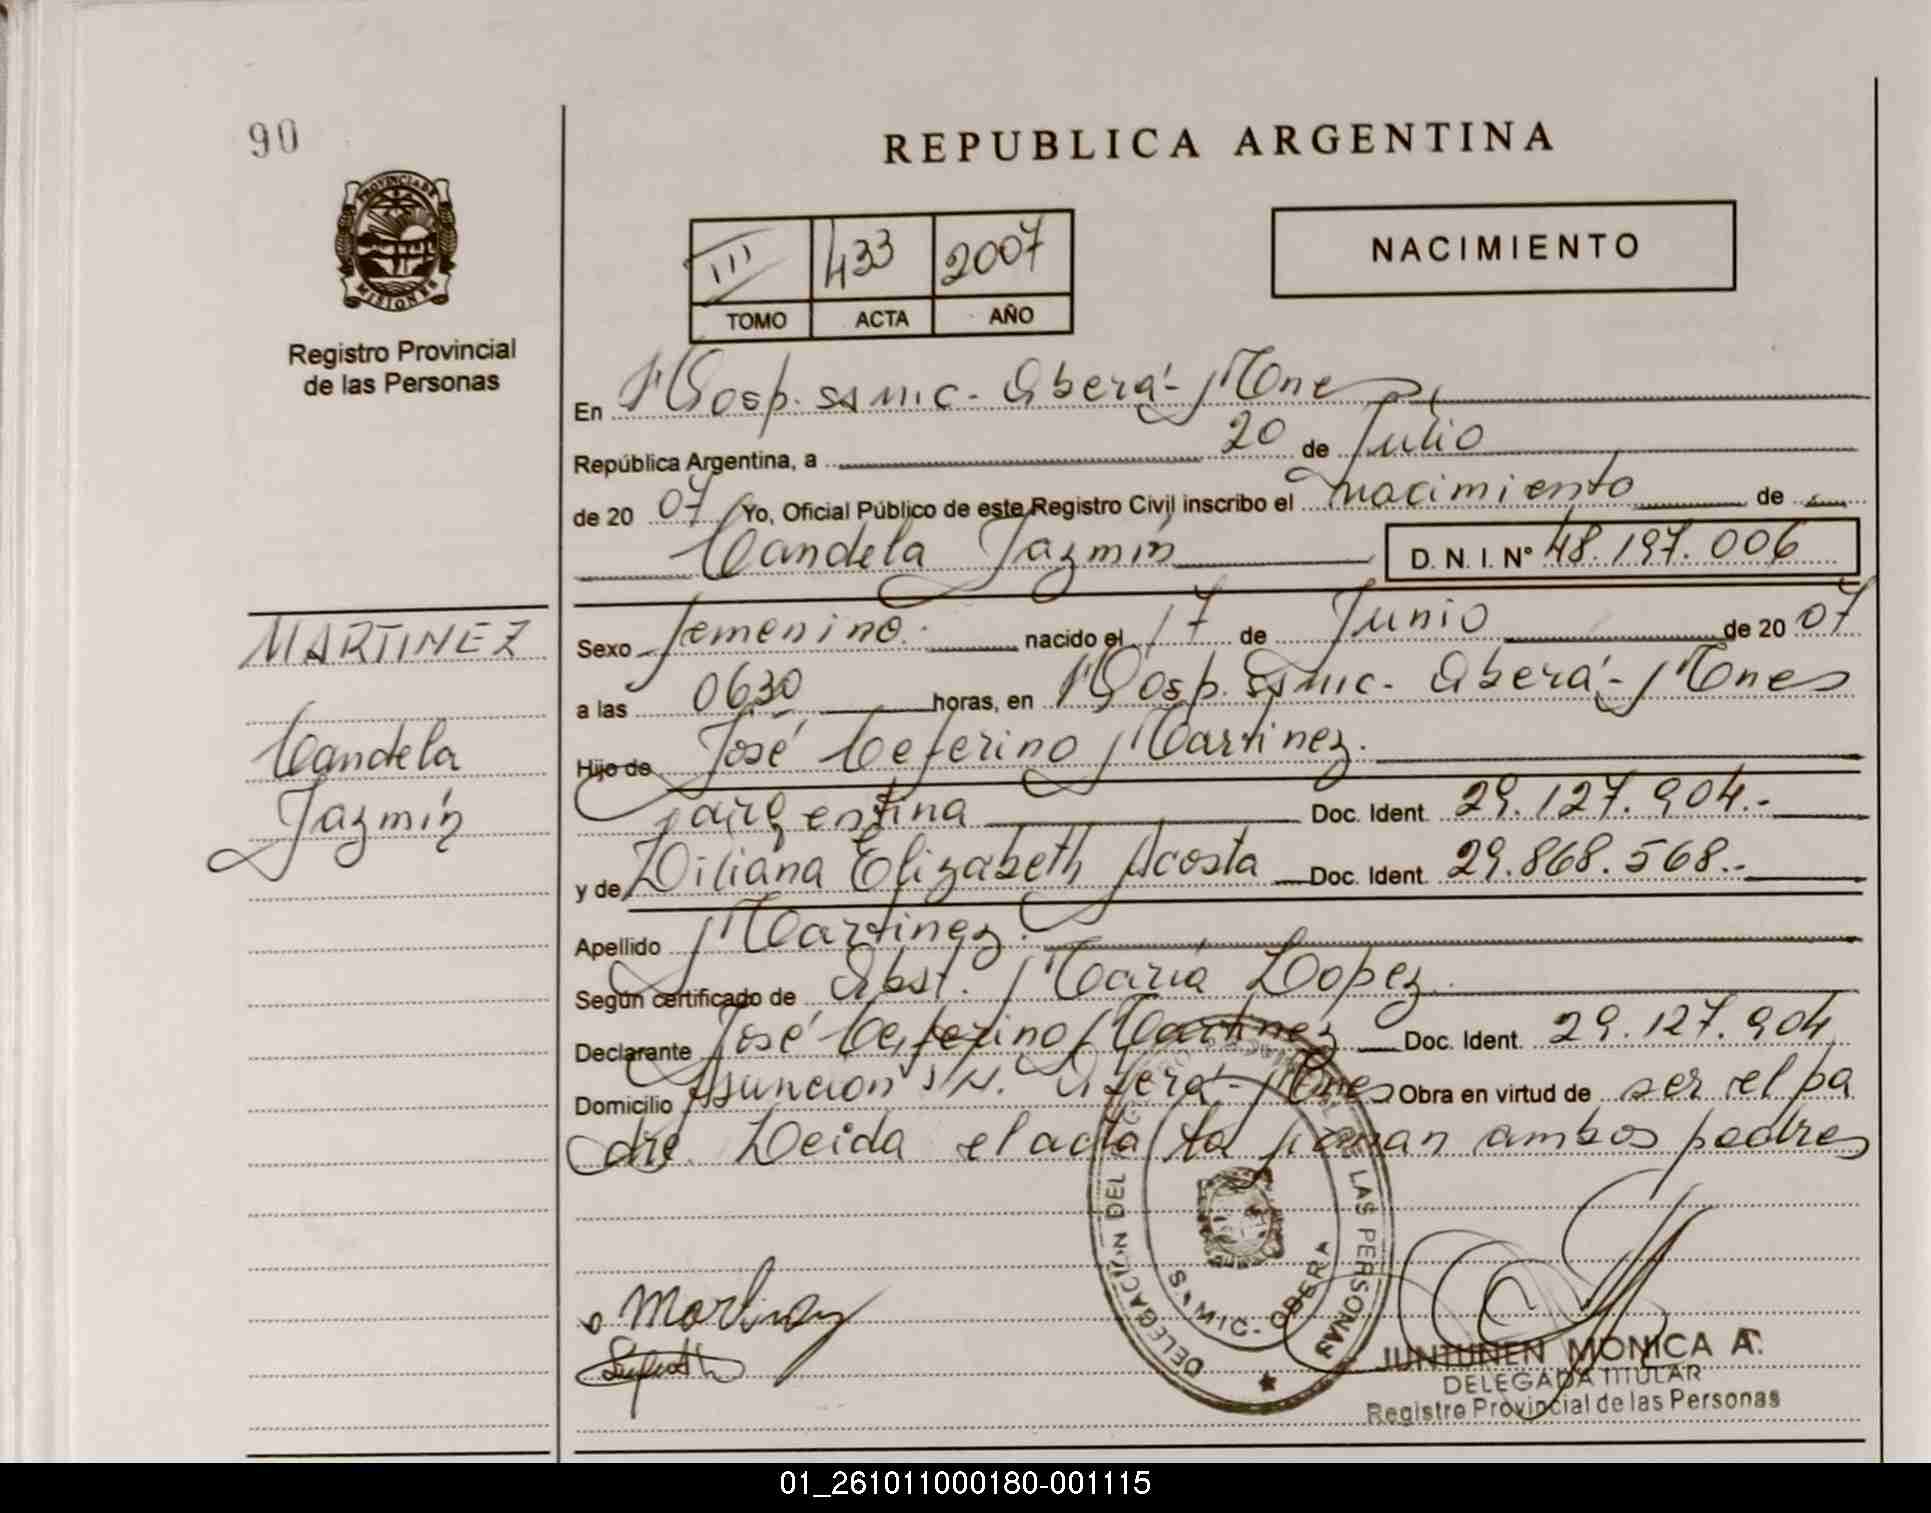 90
REPUBLICA ARGENTINA
PROVINCIA DE
MISIONES
Registro Provincial
de las Personas
III 433 2007
TOMO ACTA AÑO
NACIMIENTO
En Hosp. SAMIC - Oberá - Mnes,
República Argentina, a 20 de Julio
de 20 07 Yo, Oficial Público de este Registro Civil inscribo el nacimiento de
Candela Jazmín D. N. I. Nº 48.197.006
Sexo femenino. nacido el 17 de Junio de 20 07
a las 0630 horas, en Hosp. SAMIC - Oberá - Mnes
Hijo de José Ceferino Martinez.
argentina Doc. Ident. 29.127.904.-
y de Liliana Elizabeth Acosta Doc. Ident. 29.868.568.-
Apellido Martinez.
Según certificado de Obst. María Lopez.
Declarante José Ceferino Martinez Doc. Ident. 29.127.904
Domicilio Asunción S/N. Oberá - Mnes Obra en virtud de ser el pa
dre. Leida el acta la firman ambos padres
MARTINEZ
Candela
Jazmín
Martinez
DELEGACION DEL DE LAS PERSONAS
SAMIC - OBERA
JUNTUNEN MONICA A.
DELEGADA TITULAR
Registro Provincial de las Personas
01_261011000180-001115